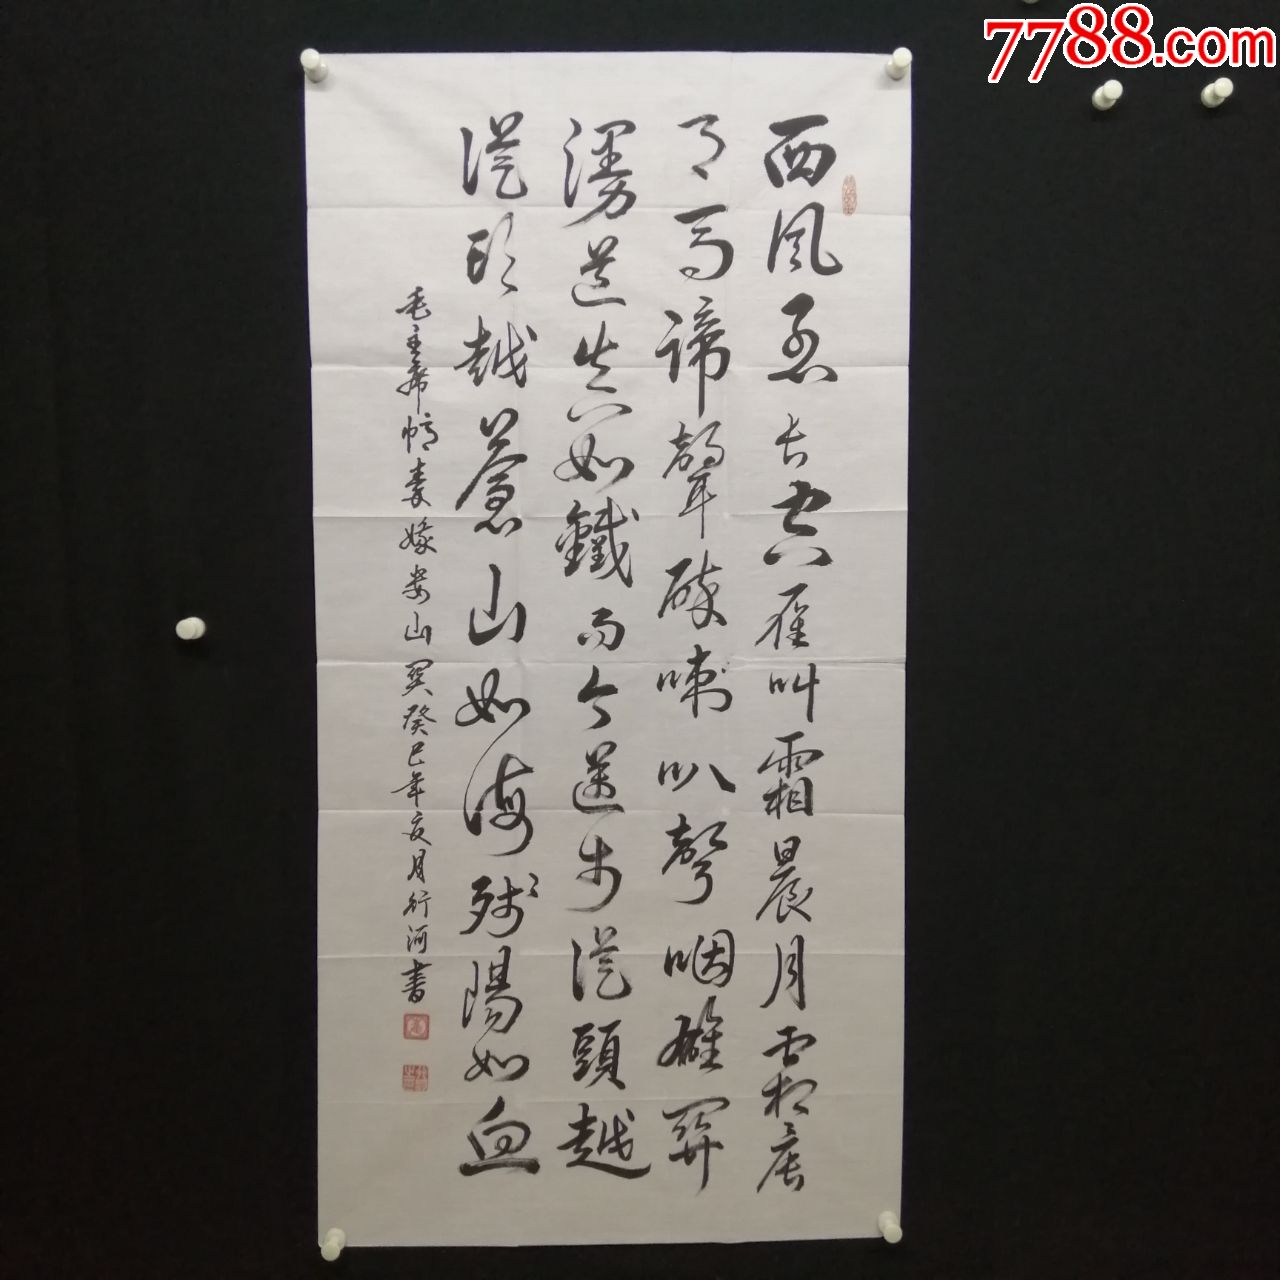 7788.com
西风烈长空雁叫霜晨月霜晨
月马蹄聲碎喇叭聲咽雄關
漫道真如鐵而今邁步從頭越
從头越蒼山如海残陽如血
毛主席憶秦娥娄山関癸巳年亥月衍河書